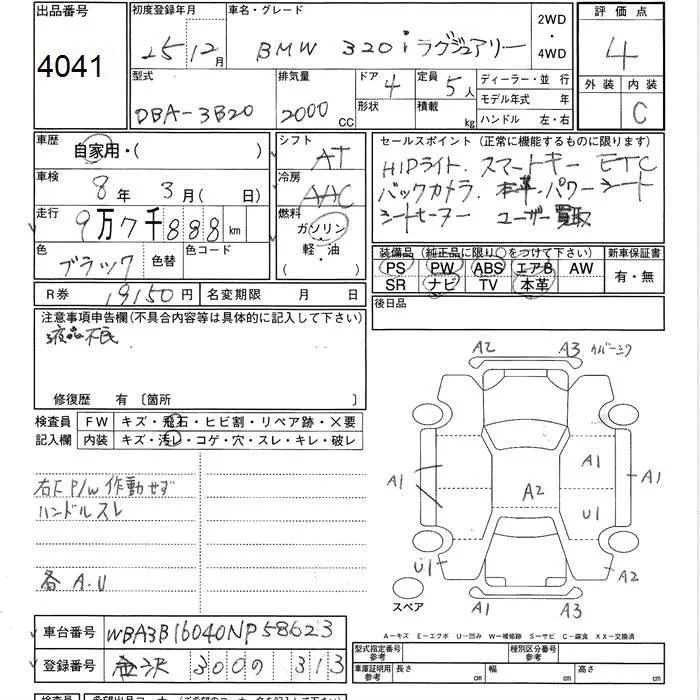 出品番号 4041
初度登録年月 25 12月
車名・グレード BMW 320i ラグジュアリー
2WD・4WD
評価点 4
外装 内装 C
型式 DBA-3B20
排気量 2000 CC
ドア 4 形状
定員 5人 積載 kg
ディーラー・並行
モデル年式 年
ハンドル 左・右
車歴 自家用・( )
シフト AT
車検 8年 3月(日)
冷房 AAC
走行 9万7千888 km
燃料 ガソリン・軽・油 ( )
色 ブラック 色替 色コード
R券 19150円 名変期限 月 日
セールスポイント (正常に機能するものに限ります)
HIDライト. スマートキー ETC
バックカメラ. 本革・パワーシート
シートヒーター ユーザー買取
装備品 (純正品に限り○をつけて下さい) 新車保証書
PS PW ABS エアB AW 有・無
SR ナビ TV 本革
後日品
注意事項申告欄(不具合内容等は具体的に記入して下さい)
液晶不良
修復歴 有 〔箇所 〕
検査員 FW キズ・飛石・ヒビ割・リペア跡・×要
記入欄 内装 キズ・汚レ・コゲ・穴・スレ・キレ・破レ
右F P/W 作動せず
ハンドルスレ
各 A.U
A2 A3
A1 A1 A1
A2
U1
U1 A2
A1 A3
スペア
A-キズ E-エクボ U-凹み W-補修跡 S-サビ C-腐食 XX-交換済
車台番号 WBA3B16040NP58623
登録番号 金沢 300 の 313
型式指定番号 参考 種別区分番号 参考
車庫証明用 参考 長さ cm 幅 cm 高さ cm